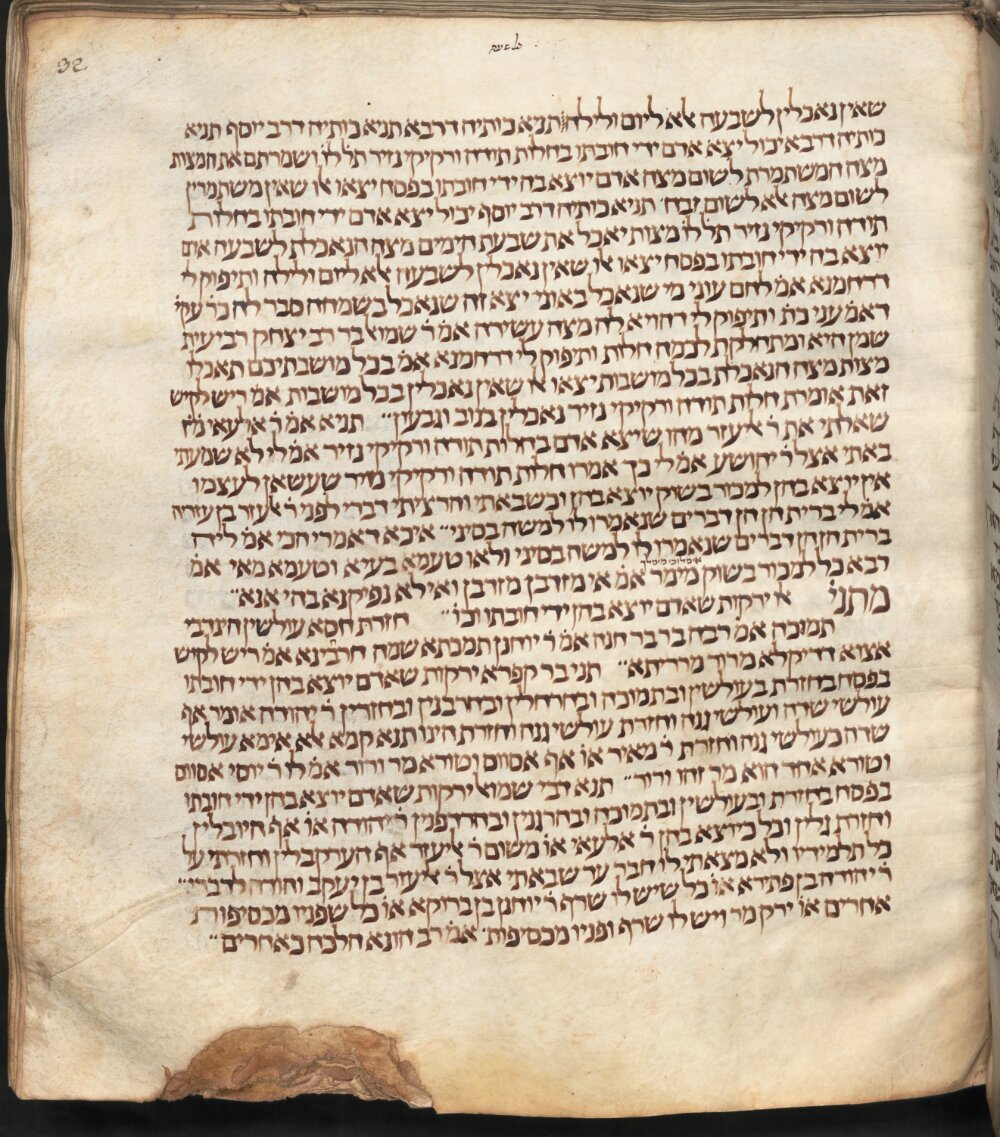 כל שעה
32
שאין נאכלין לשבעה אלא ליום ולילה תניא כותיה דרבא תניא כותיה דרב יוסף תניא
כותיה דרבא יכול יצא אדם ידי חובתו בחלות תודה ורקיקי נזיר תל׳ לו׳ ושמרתם את המצות
מצה המשתמרת לשום מצה אדם יוצא בה ידי חובתו בפסח יצאו אלו שאין משתמרין
לשום מצה אלא לשום זבח׳ תניא כותיה דרב יוסף יכול יצא אדם ידי חובתו בחלות
תודה ורקיקי נזיר תל׳ לו׳ מצות יאכל את שבעת הימים מצה הנאכלת לשבעה אדם
יוצא בה ידי חובתו בפסח יצאו אלו שאין נאכלין לשבעה אלא ליום ולילה ותיפוק לי
דרחמנא אמ׳ לחם עוני מי שנאכל באוני יצא זה שנאכל בשמחה סבר לה כר׳ עקי׳
דאמ׳ עני כת׳ ותיפוק לי דהויא לה מצה עשירה אמ׳ ר׳ שמואל בר רב יצחק רביעית
שמן היא ומתחלקת לכמה חלות ותיפוק לי דרחמנא אמ׳ בכל מושבתיכם תאכלו
מצות מצה הנאכלת בכל מושבות יצאו אלו שאין נאכלין בכל מושבות אמ׳ ריש לקיש
זאת אומרת חלות תודה ורקיקי נזיר נאכלין בנוב וגבעון״ תניא אמ׳ ר׳ אלעאי
שאלתי את ר׳ אליעזר מהו שיצא אדם בחלות תודה ורקיקי נזיר אמ׳ לי לא שמעתי
באתי אצל ר׳ יהושע אמ׳ לי כך אמרו חלות תודה ורקיקי נזיר שעשאן לעצמו
אין יוצא בהן למכור בשוק יוצא בהן וכשבאתי והרציתי דברי לפני ר׳ אלעזר בן עזריה
אמ׳ לי ברית הן הן דברים שנאמרו לו למשה בסיני״ איכא דאמרי הכי אמ׳ ליה
ברית הן הן דברים שנאמרו לו למשה בסיני ולאו טעמא בעיא וטעמא מאי אמ׳
רבא כל למכור בשוק מימר אמ׳ אי מזדבן מזדבן ואי לא נפיקנא בהי אנא״
מתני׳ אלו ירקות שאדם יוצא בהן ידי חובתו וכו׳״ חזרת חסא עולשין הינדבי
תמוכה אמ׳ רבה בר בר חנה אמ׳ ר׳ יוחנן תמכתא שמה חרבינא אמ׳ ריש לקיש
אצוא דדיקלא מרור מרריתא״ תני בר קפרא ירקות שאדם יוצא בהן ידי חובתו
בפסח בחזרת בעולשין ובתמוכה ובחרחלין ובחרבנין ובחזרין ר׳ יהודה אומר אף
עולשי שדה ועולשי גנה וחזרת עולשי גנה וחזרת הינו תנא קמא אלא אימא עולשי
שדה כעולשי גנה וחזרת ר׳ מאיר או׳ אף אסווס וטורא מר ורור אמ׳ לו ר׳ יוסי אסווס
וטורא אחד הוא מר זהו ורור״ תנא דבי שמואל ירקות שאדם יוצא בהן ידי חובתו
בפסח בחזרת ובעולשין ובתמוכה ובחרגנין ובחרדפנין ר׳ יהודה או׳ אף חיובלין
וחזרת גלין וכל כיוצא בהן ר׳ אלעאי או׳ משום ר׳ אליעזר אף הערקבלין וחזרתי על
כל תלמידיו ולא מצאתי לו חבר עד שבאתי אצל ר׳ אליעזר בן יעקב והודה לדברי״
ר׳ יהודה בן פתירא או׳ כל שיש לו שרף ר׳ יוחנן בן ברוקא או׳ כל שפניו מכסיפות
אחרים או׳ ירק מר ויש לו שרף ופניו מכסיפות׳ אמ׳ רב הונא הלכה כאחרים״